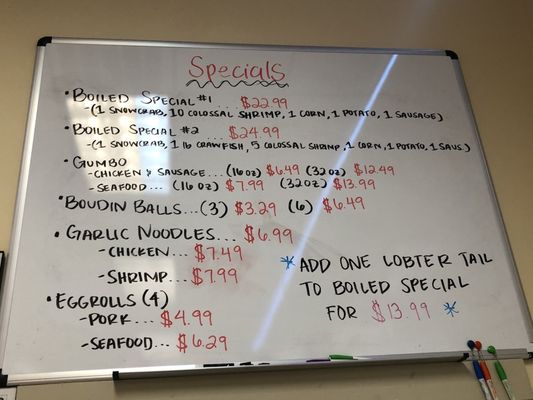 Specials
• BOILED SPECIAL #1 ... $22.99
-(1 SNOWCRAB, 10 COLOSSAL SHRIMP, 1 CORN, 1 POTATO, 1 SAUSAGE)
• BOILED SPECIAL #2 ... $24.99
-(1 SNOWCRAB, 1 lb CRAWFISH, 5 COLOSSAL SHRIMP, 1 CORN, 1 POTATO, 1 SAUS.)
• GUMBO
- CHICKEN & SAUSAGE... (16oz) $6.49 (32oz) $12.49
- SEAFOOD... (16oz) $7.99 (32oz) $13.99
• BOUDIN BALLS...(3) $3.29 (6) $6.49
• GARLIC NOODLES... $6.99
- CHICKEN... $7.49
- SHRIMP... $7.99
• EGGROLLS (4)
- PORK... $4.99
- SEAFOOD... $6.29
* ADD ONE LOBTER TAIL
TO BOILED SPECIAL
FOR $13.99 *